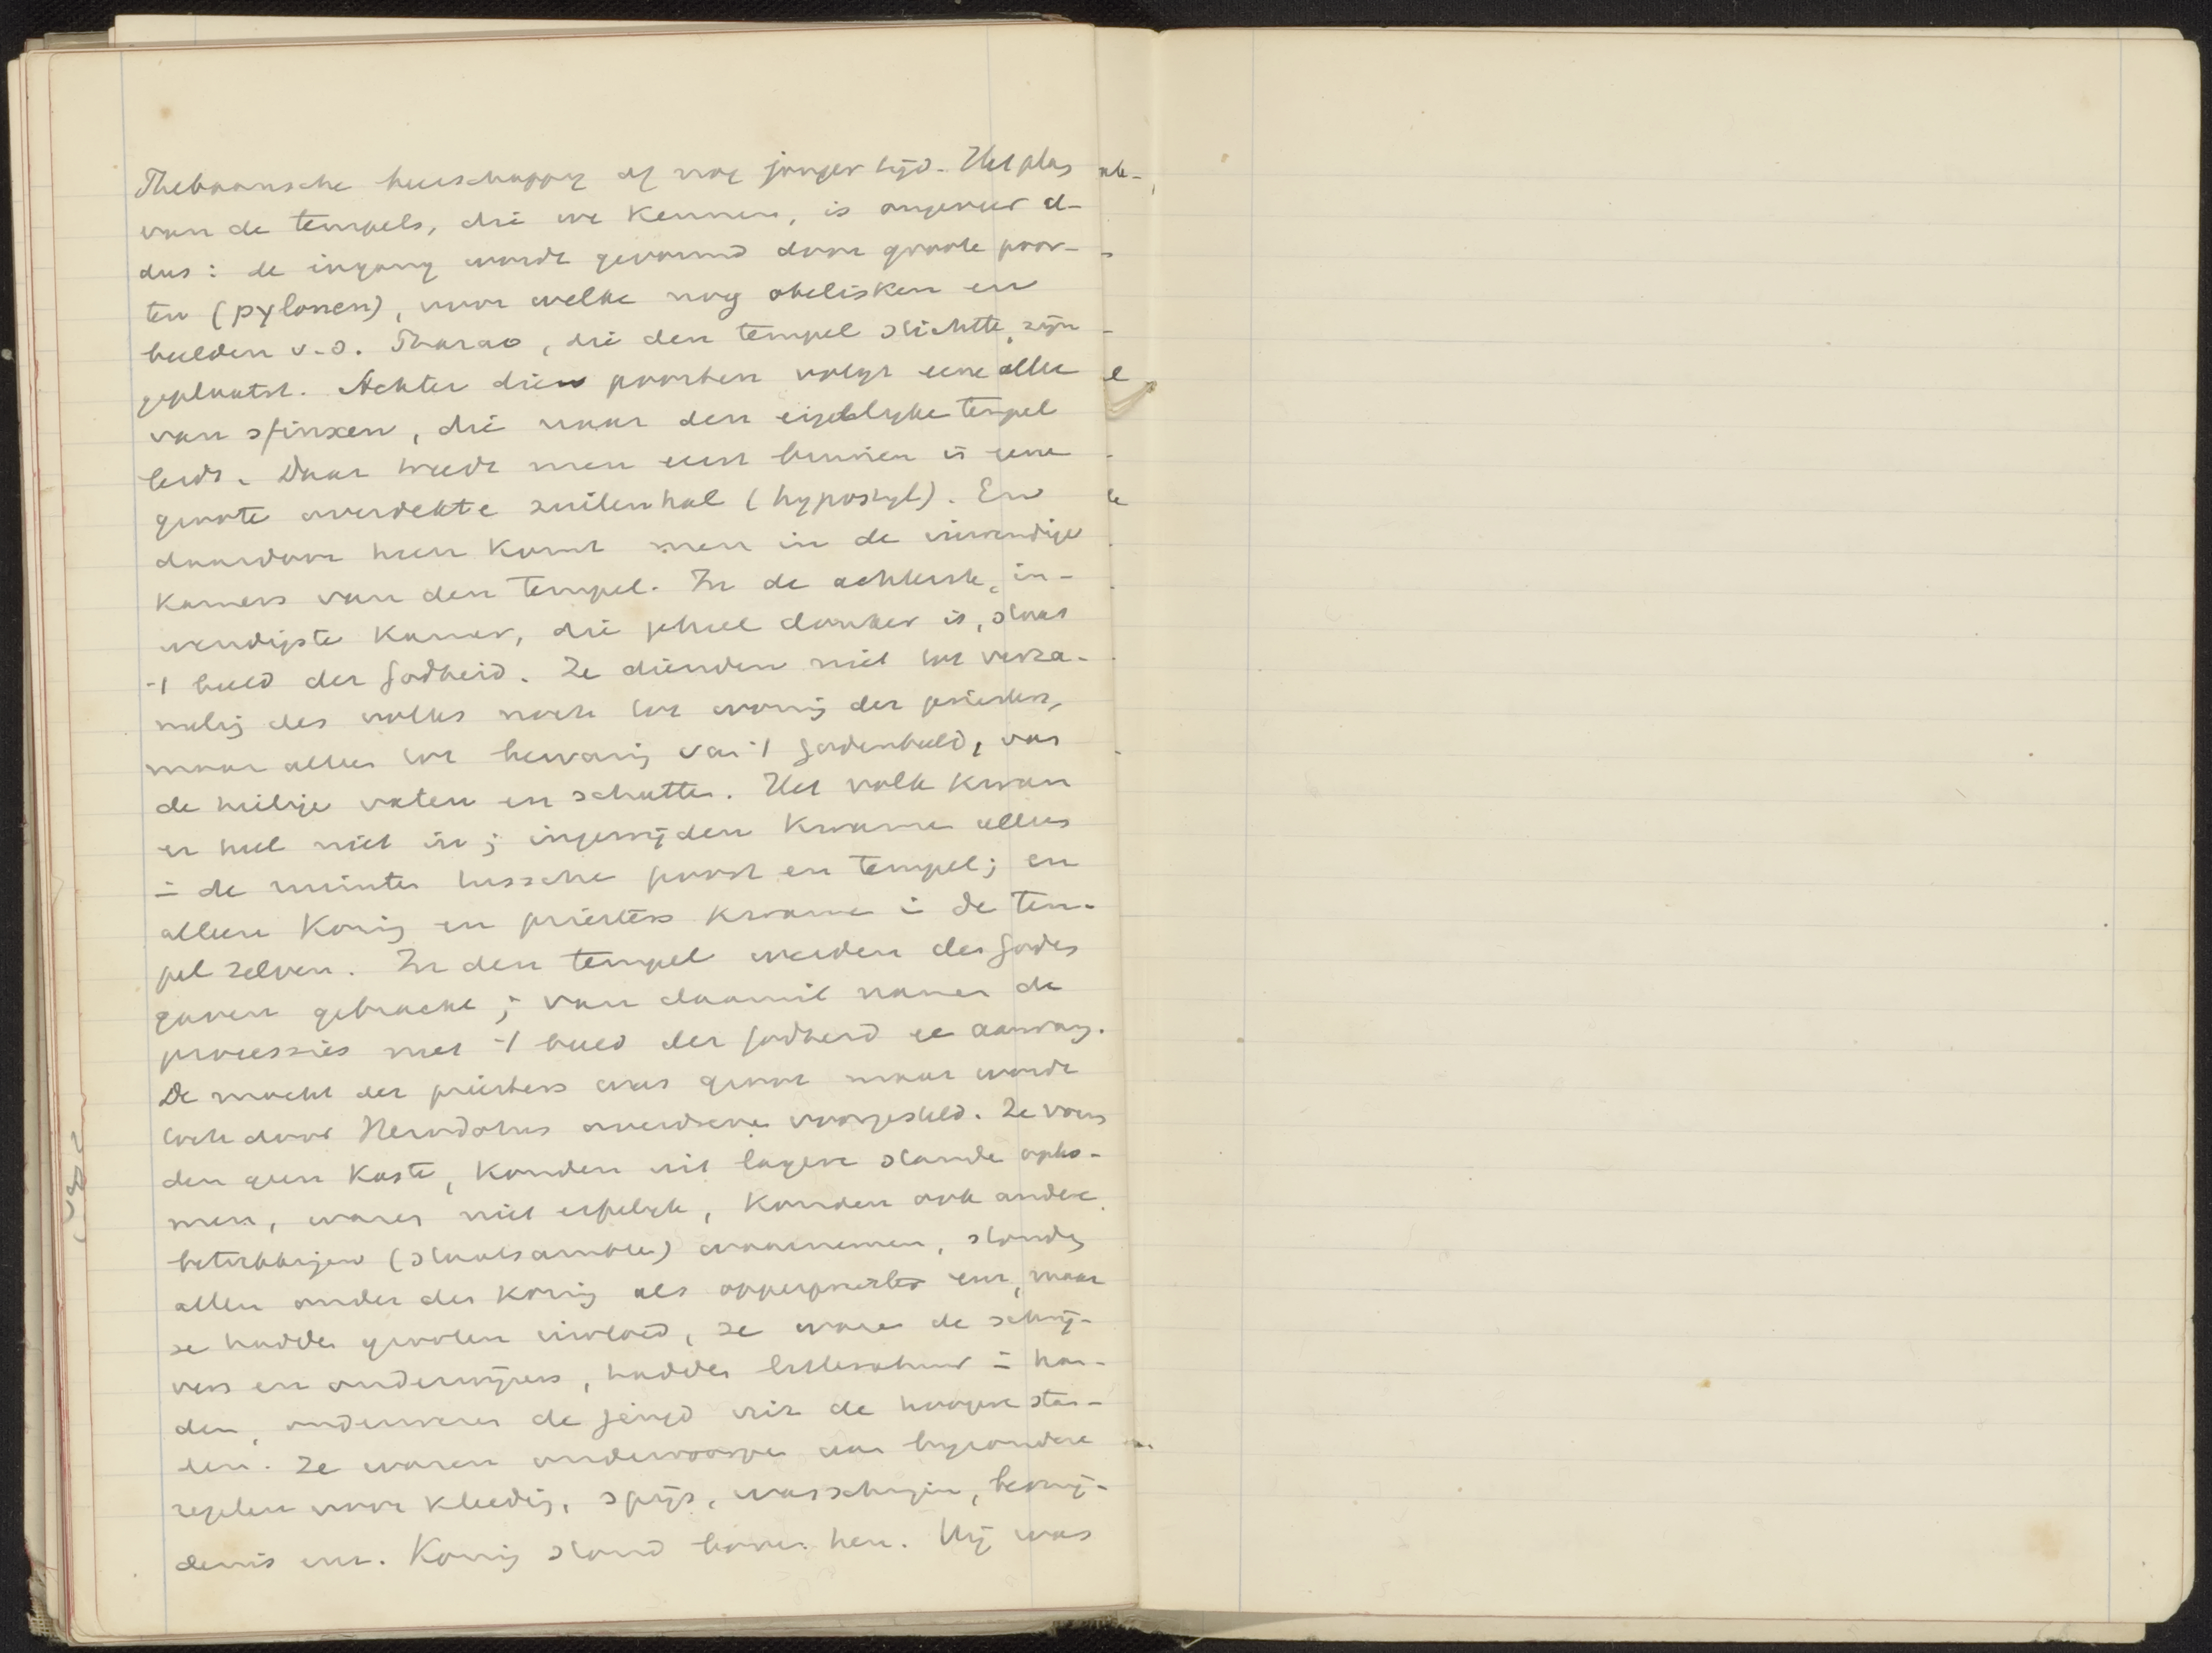 Thebaansche heerschappij of nog jonger tijd. Het plan
van de tempels, die we kennen, is ongeveer al-
dus: de ingang wordt gevormd door groote poor-
ten (pylonen), voor welke nog obelisken en
beelden v. d. Pharao, die den tempel stichtte, zijn
geplaatst. Achter dien poorten volgt eene allee
van sfinxen, die naar den eigenlijke tempel
leidt. Daar treedt men eerst binnen in eene
groote overdekte zuilenhal (hypostyl). En
daardoor heen komt men in de inwendige
kamers van den tempel. In de achterste, in-
wendigste kamer, die geheel donker is, staat
't beeld der Godheid. Ze dienden niet tot verza-
melig des volks noch tot wonig der priesters,
maar alleen tot bewarig van 't Godenbeeld, van
de heilige vaten en schatten. Het volk kwam
er heel niet in; ingewijden kwame alleen
in de ruimten tussche poort en tempel; en
alleen Konig en priesters kwame in de Tem-
pel zelven. In den tempel werden den Goden
gaven gebracht; van daaruit namen de
processies met 't beeld der Godheid een aanvang.
De macht der priesters was groot maar wordt
toch door Herodotus overdreven voorgesteld. Ze vorm
den geen kaste, konden uit lagere stande opko-
men, waren niet erfelijk, konden ook andere
betrekkigen (staatsambten) waarnemen, stonden
allen onder den konig als opperpriester enz, maar
ze hadden grooten invloed, ze waren de schrij-
vers en onderwijzers, hadden litteratuur in han-
den, onderwezen de jeugd uit de hoogere stan-
den. Ze waren onderworpen aan bijzondere
regelen voor kleedig, spijs, wasschigen, besnij-
denis enz. Konig stond boven hen. Hij was